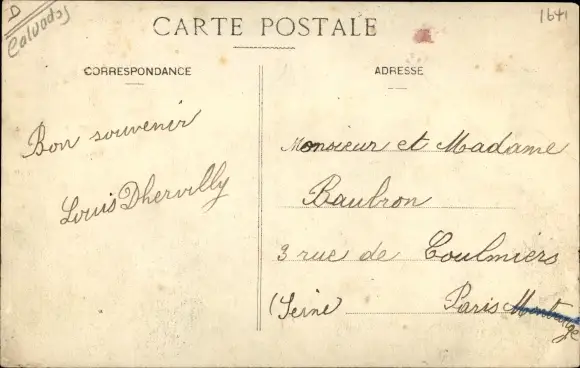 D
Calvados
1641
CARTE POSTALE
CORRESPONDANCE
Bon souvenir
Louis Dhervilly
ADRESSE
Monsieur et Madame
Baubron
3 rue de Coulmiers
(Seine Paris Montrouge